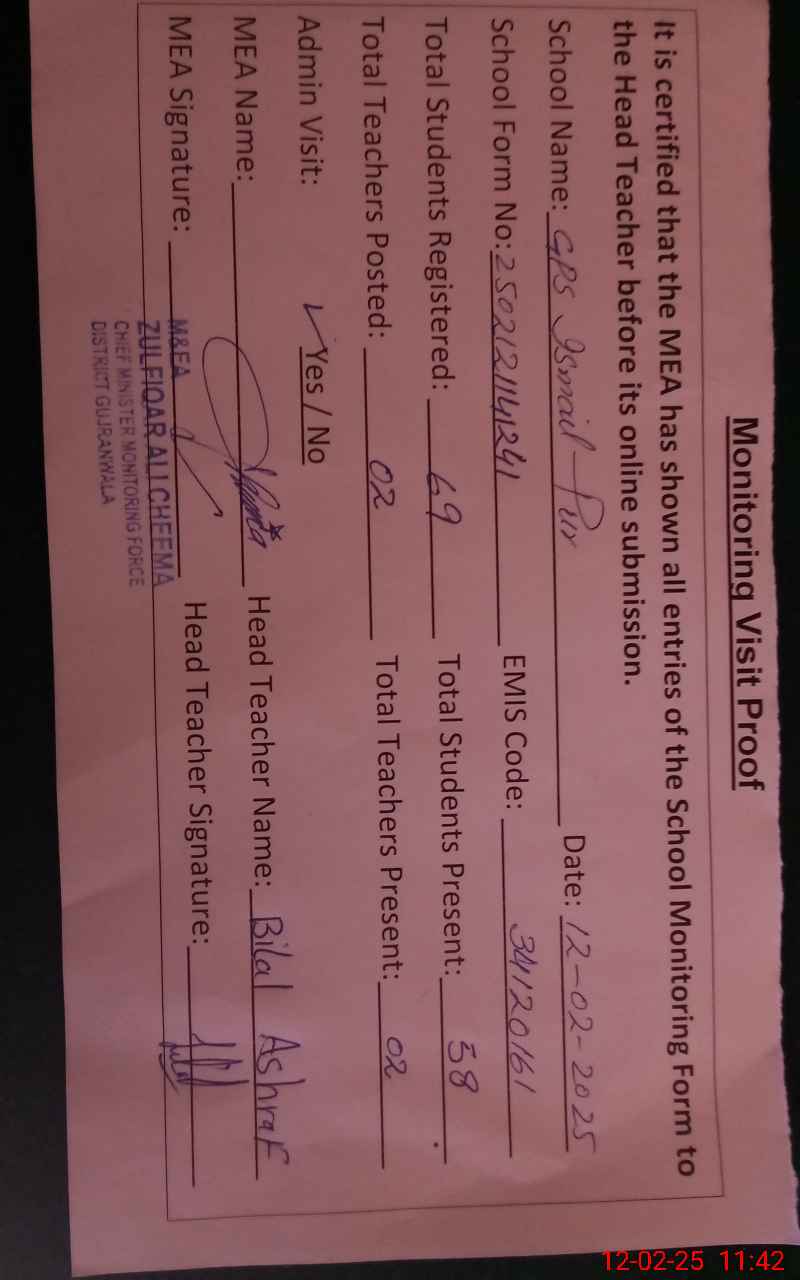 Monitoring Visit Proof
It is certified that the MEA has shown all entries of the School Monitoring Form to
the Head Teacher before its online submission.
School Name: GPS Ismail Pur Date: 12-02-2025
School Form No: 250212114241 EMIS Code: 34120161
Total Students Registered: 69 Total Students Present: 58
Total Teachers Posted: 02 Total Teachers Present: 02
Admin Visit: ✓ Yes / No
MEA Name: Head Teacher Name: Bilal Ashraf
MEA Signature: Head Teacher Signature:
M&EA
ZULFIQAR ALI CHEEMA
CHIEF MINISTER MONITORING FORCE
DISTRICT GUJRANWALA
12-02-25 11:42